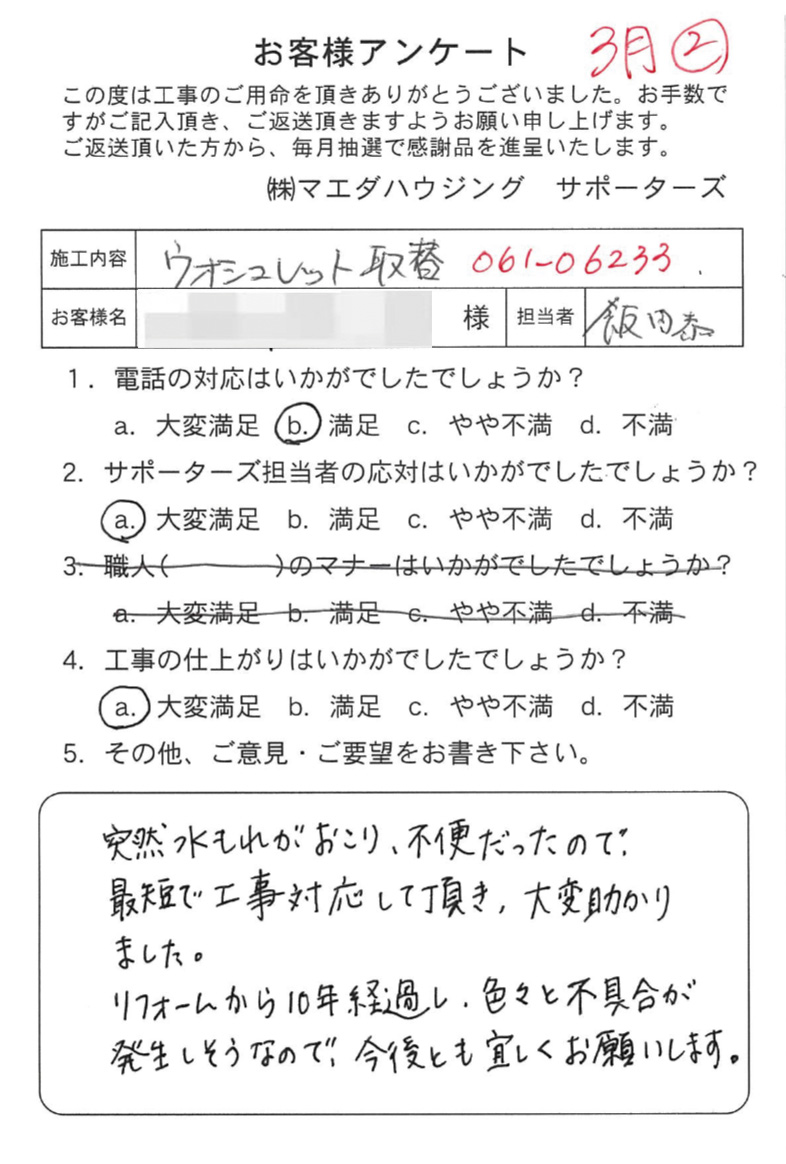 お客様アンケート 3月②
この度は工事のご用命を頂きありがとうございました。お手数で
すがご記入頂き、ご返送頂きますようお願い申し上げます。
ご返送頂いた方から、毎月抽選で感謝品を進呈いたします。
㈱マエダハウジング サポーターズ
施工内容 ウオシュレット取替 061-06233
お客様名 様 担当者 飯田泰
1. 電話の対応はいかがでしたでしょうか?
a. 大変満足 b. 満足 c. やや不満 d. 不満
2. サポーターズ担当者の応対はいかがでしたでしょうか?
a. 大変満足 b. 満足 c. やや不満 d. 不満
3. 職人( )のマナーはいかがでしたでしょうか?
a. 大変満足 b. 満足 c. やや不満 d. 不満
4. 工事の仕上がりはいかがでしたでしょうか?
a. 大変満足 b. 満足 c. やや不満 d. 不満
5. その他、ご意見・ご要望をお書き下さい。
突然水もれがおこり、不便だったので、
最短で工事対応して頂き、大変助かり
ました。
リフォームから10年経過し、色々と不具合が
発生しそうなので、今後とも宜しくお願いします。